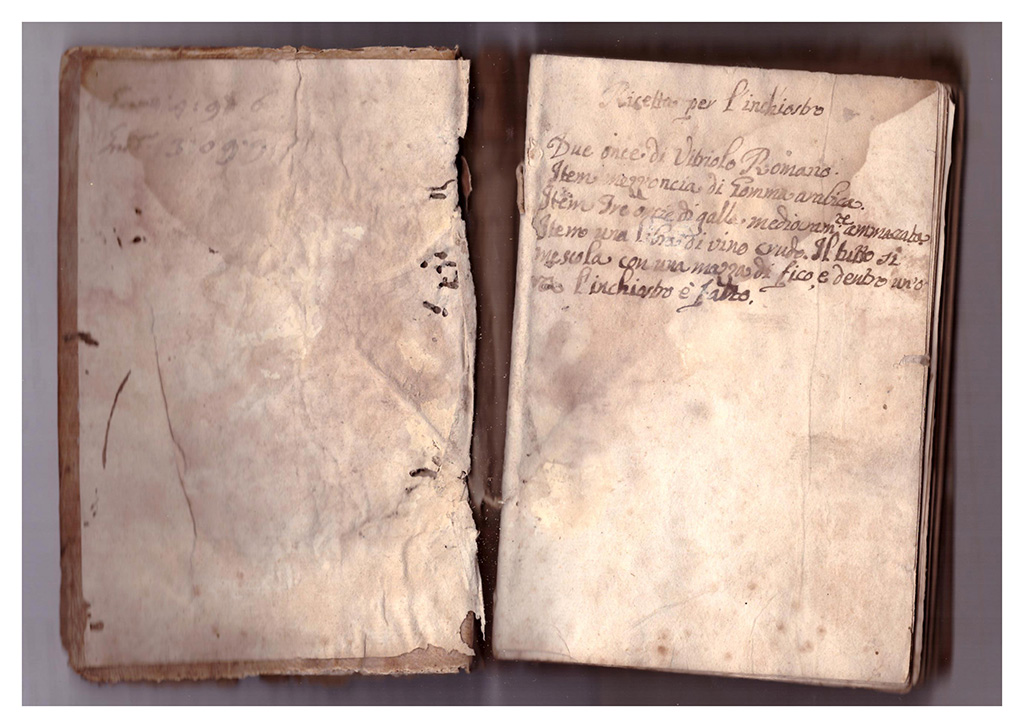 Ricetta per l'inchiostro
Due once di Vitriolo Romano.
Item mezz'oncia di Gomma arabica.
Item Tre oncie di galla mediam.te ammaccata
Item una libra di vino crudo. Il tutto si
mescola con una mazza di fico, e dentro un'o
l'inchiostro è fatto.